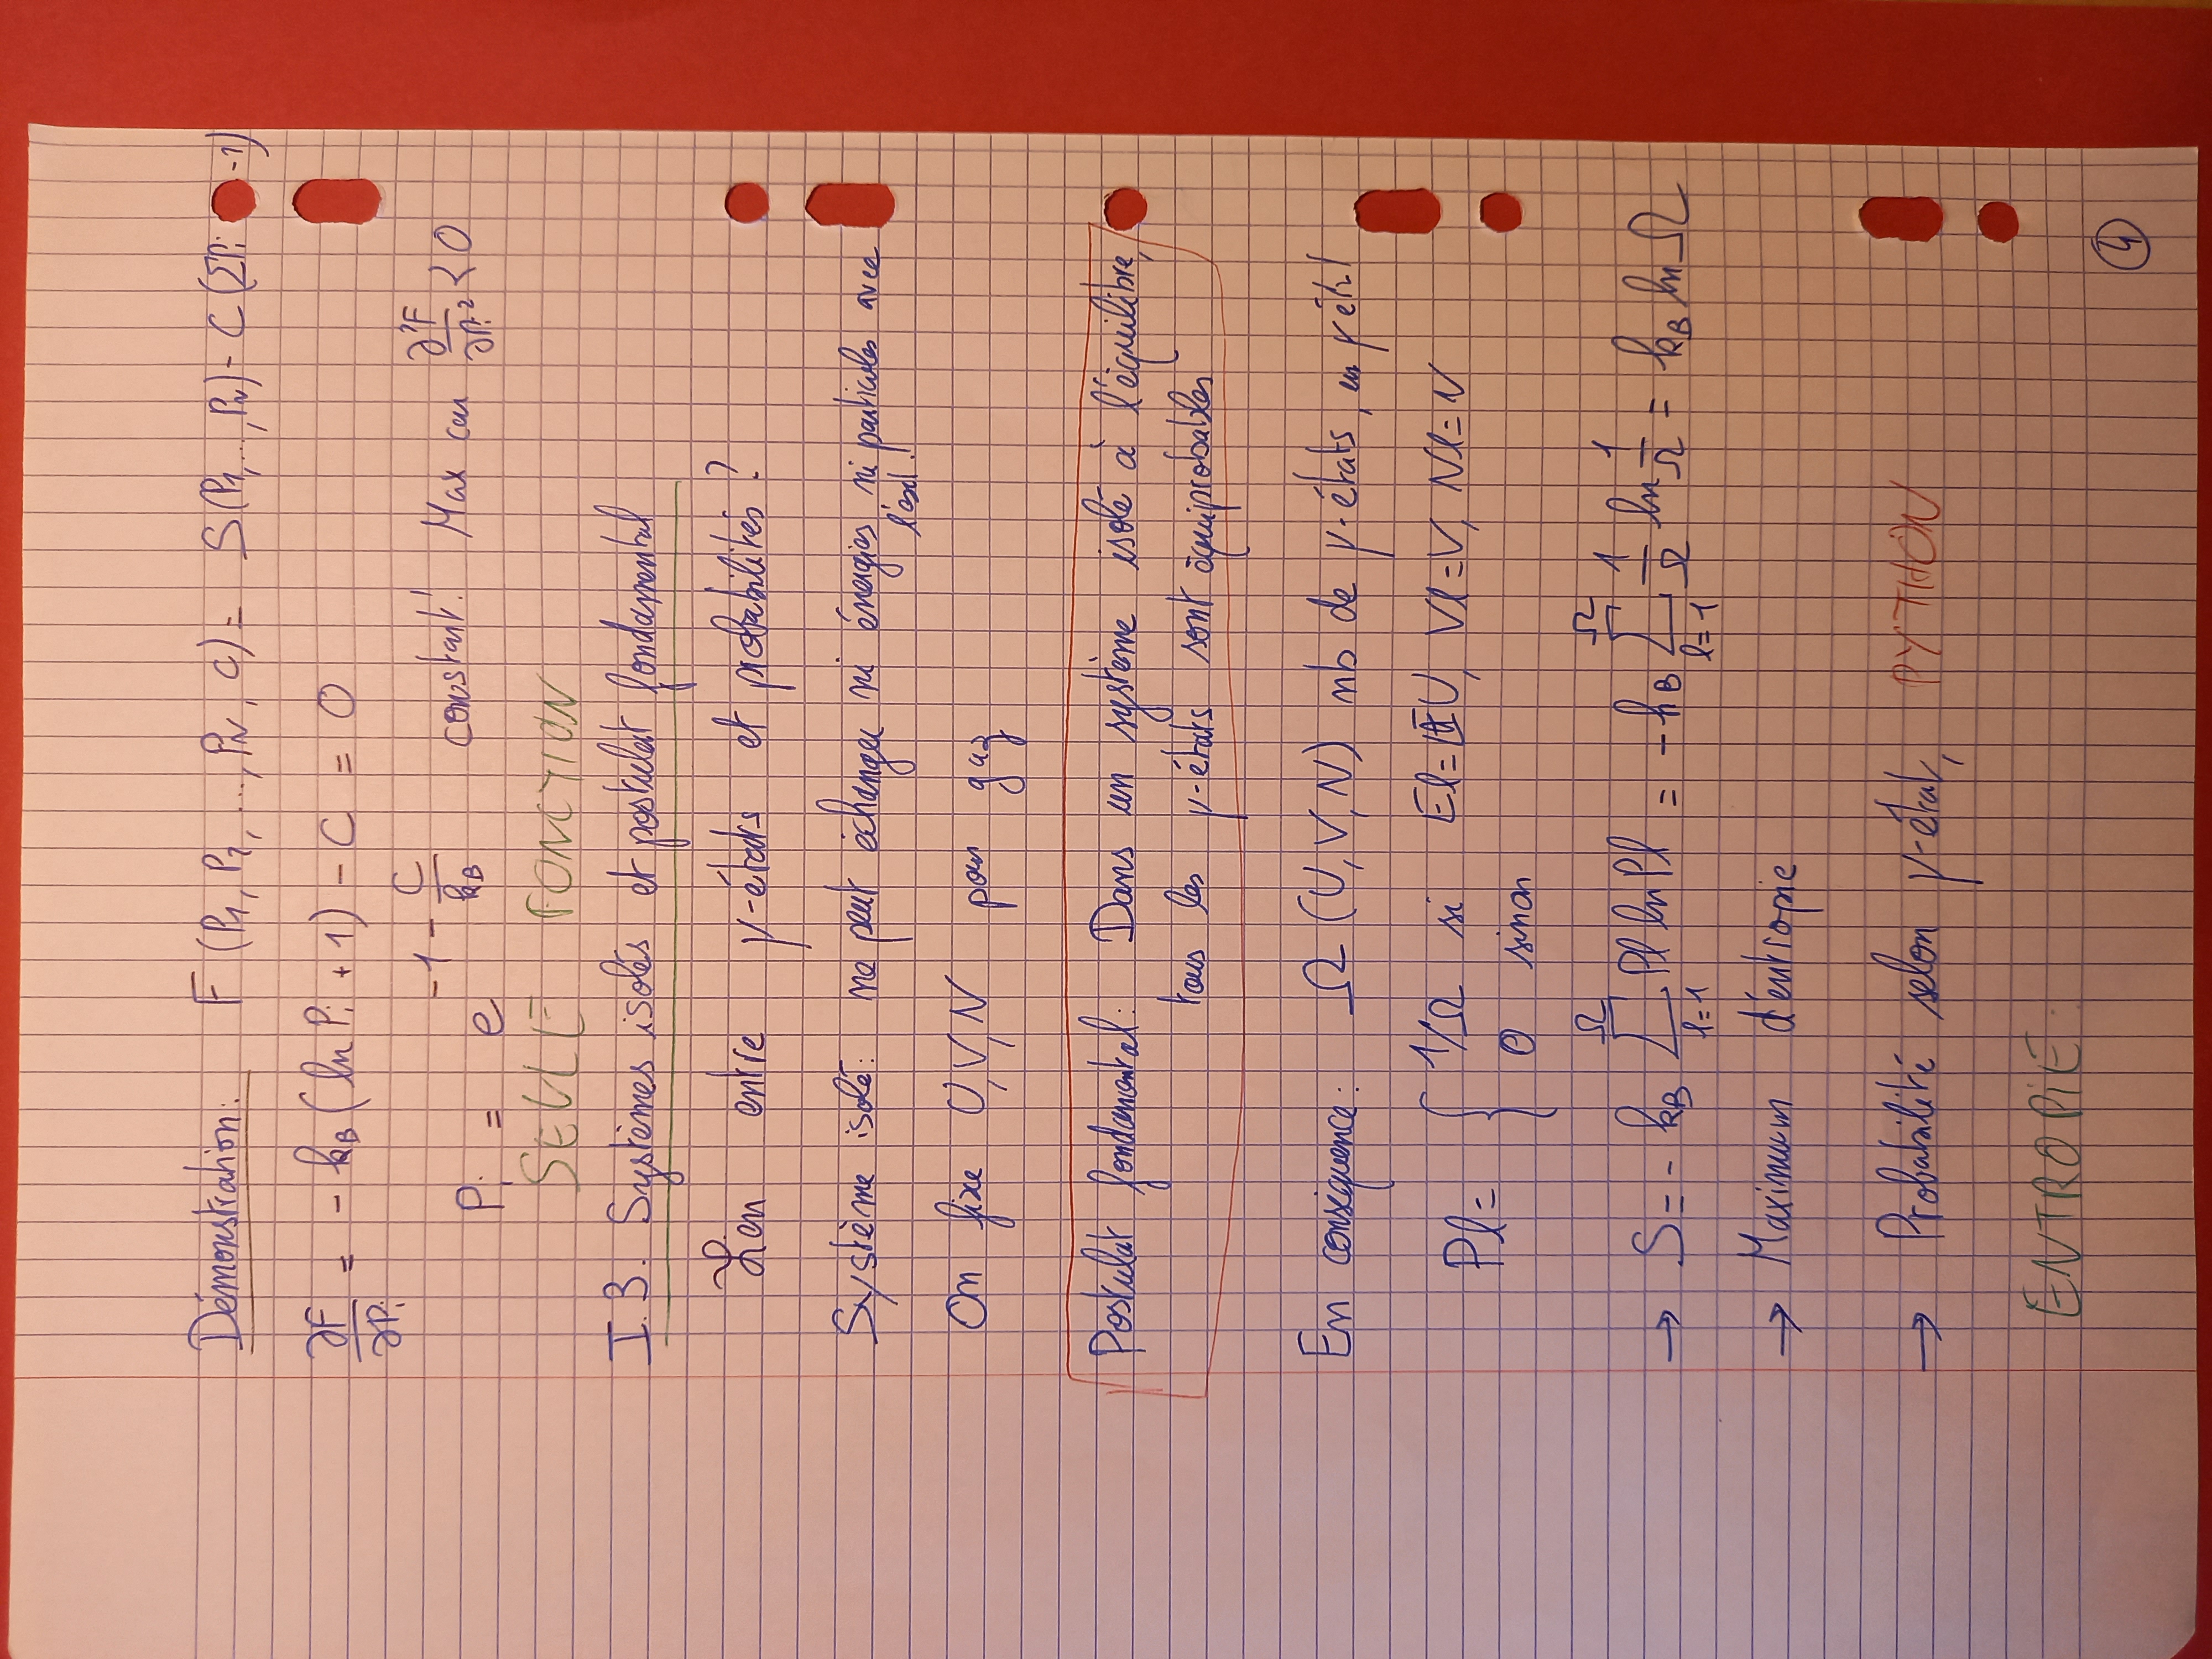 Démonstration: F(P1, P2, ..., PN, C) = S(P1, ..., PN) - C(ΣPi -1)
∂F/∂Pi = - kB(ln Pi +1) - C = 0
Pi = e^(-1 - C/kB) constant! Max car ∂²F/∂Pi² < 0
SEULE FONCTION
I.3. Systèmes isolés et postulat fondamental
Lien entre µ-états et probabilités?
Système isolé: ne peut échanger ni énergies ni particules avec
l'ext.
On fixe U,V,N pour gaz
Postulat fondamental: Dans un système isolé à l'équilibre,
tous les µ-états sont équiprobables
En conséquence: Ω(U,V,N) nb de µ-états,
Pl = { 1/Ω si El=U, Vl=V, Nl=N
0 sinon
→ S = - kB Σ(l=1, Ω) Pl ln Pl = - kB Σ(l=1, Ω) 1/Ω ln 1/Ω = kB ln Ω
→ Maximum d'entropie
→ Probabilité selon µ-état, PYTHON
ENTROPIE
4